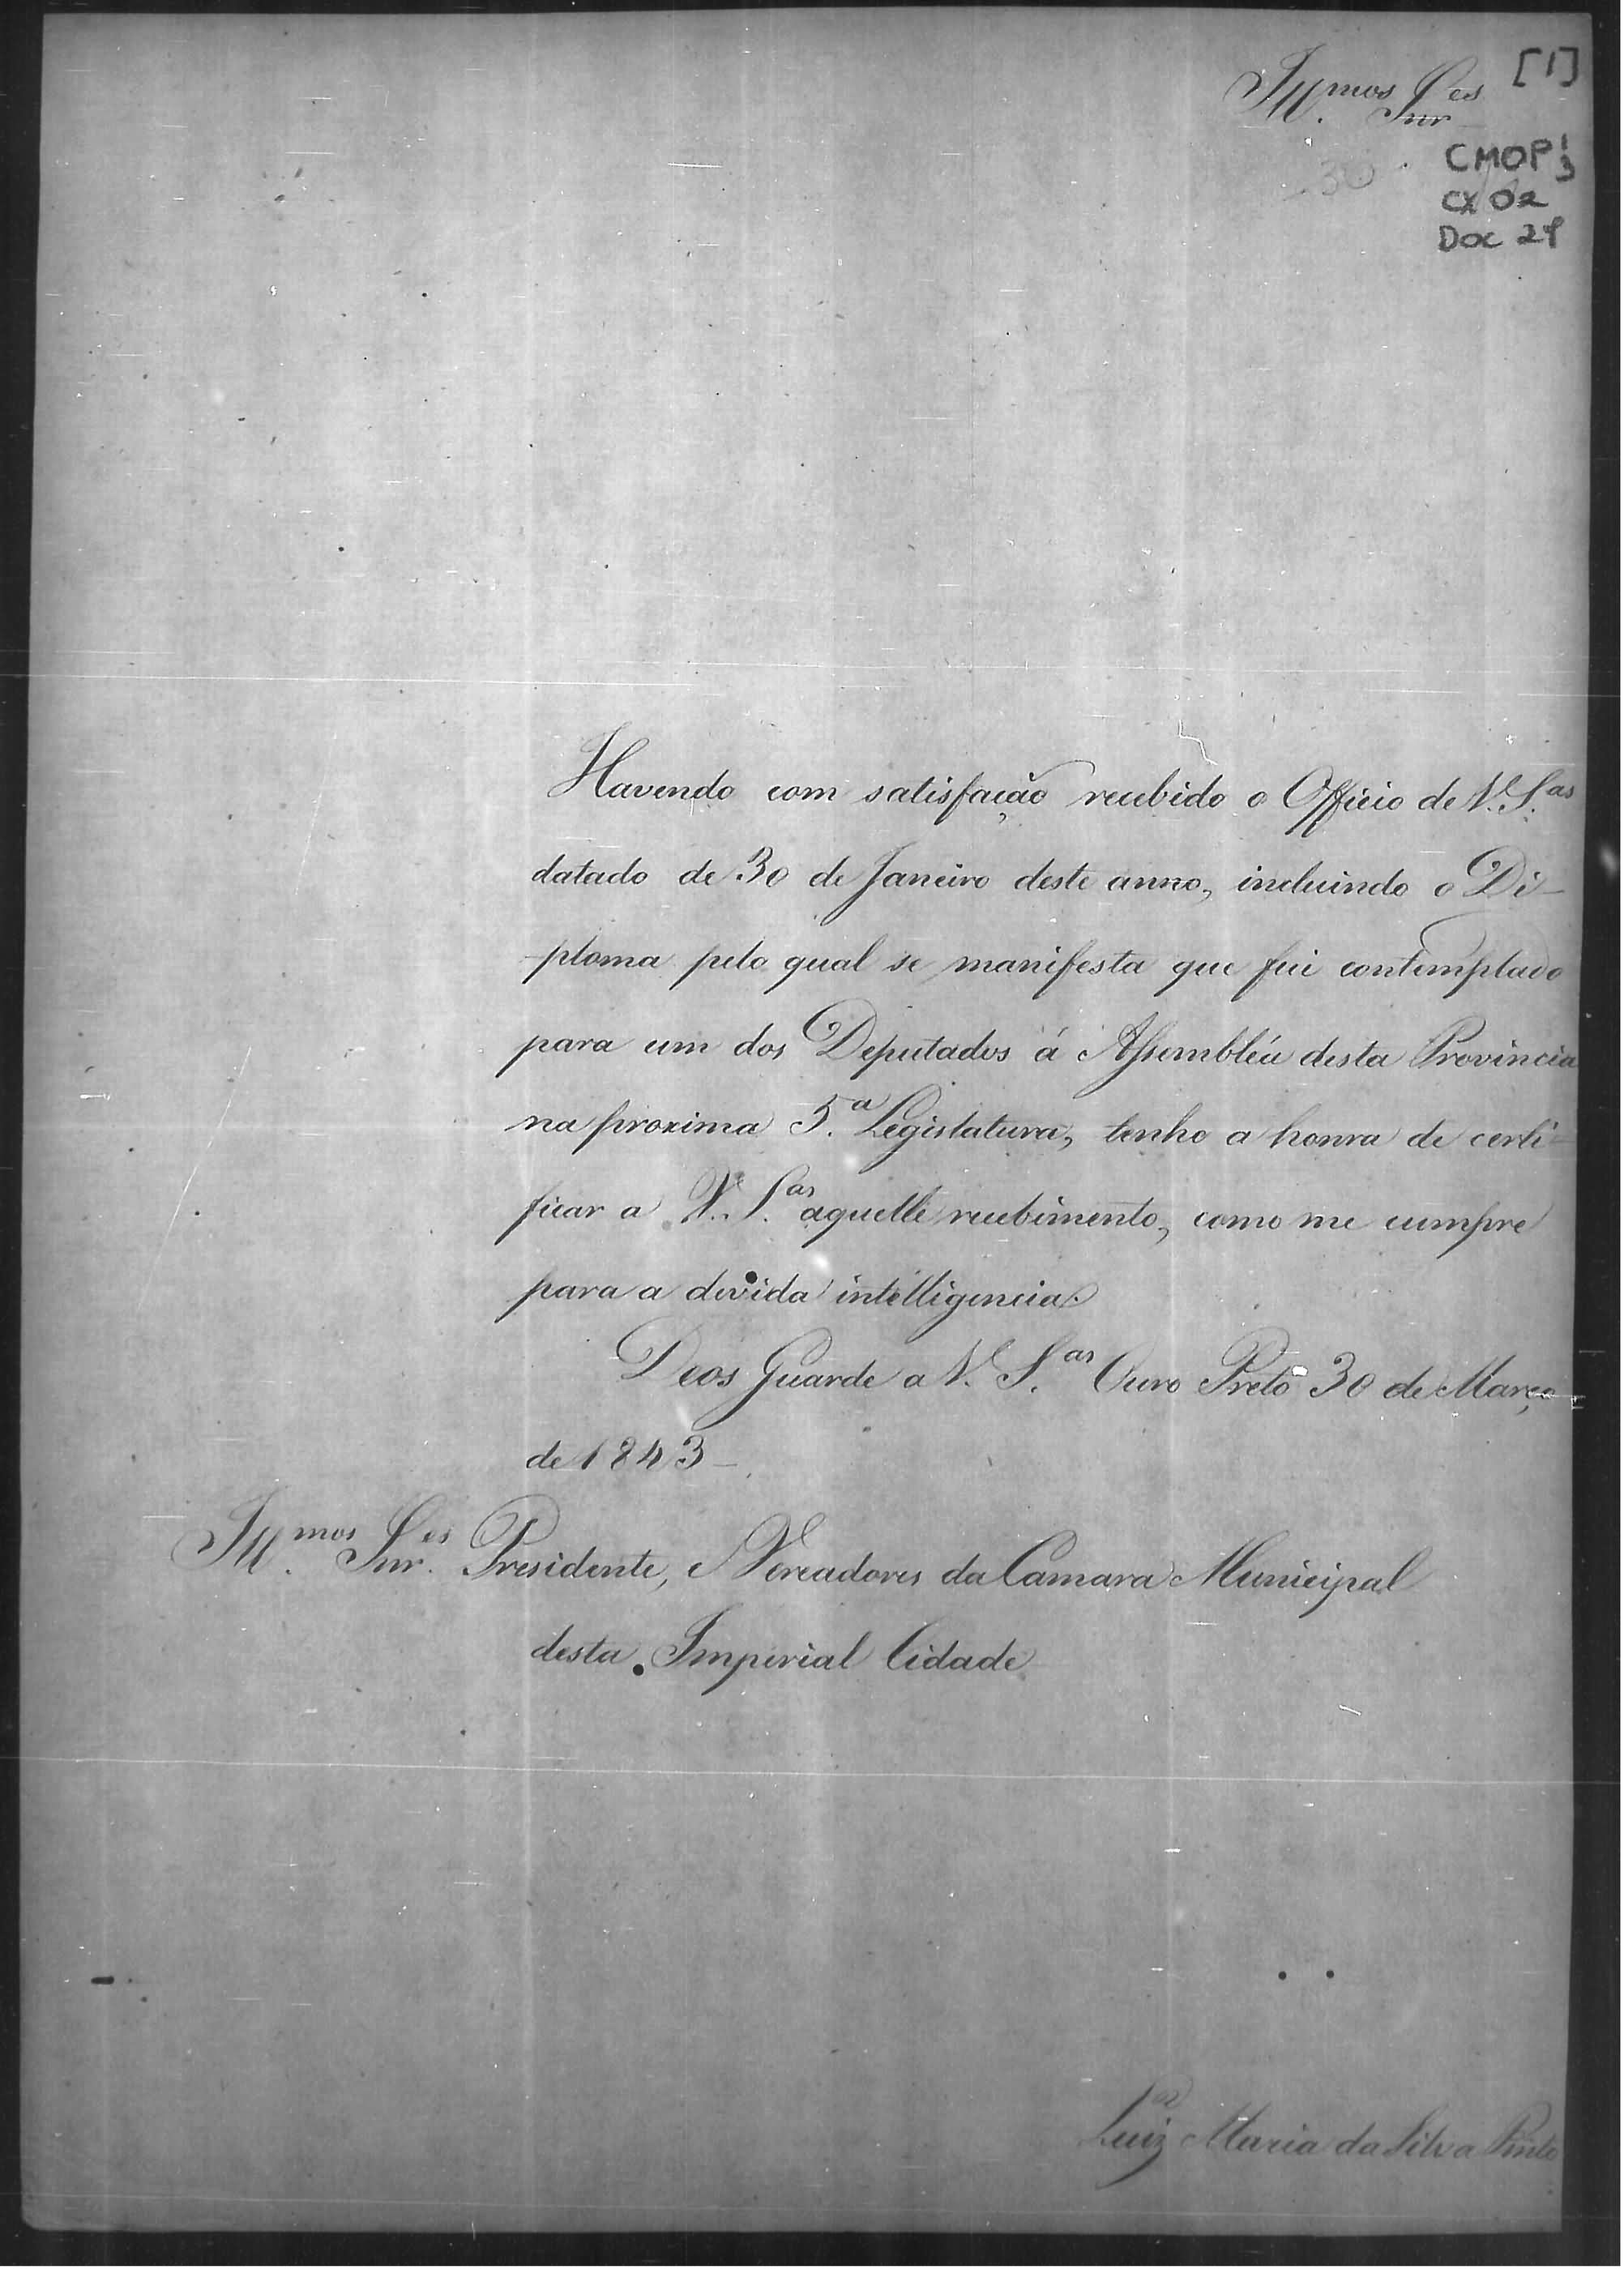 [1]
Ill.mos Snr.es
30
CMOP 1/3
CX 02
DOC 29
Havendo com satisfação recebido o Officio de V. S.as
datado de 30 de Janeiro deste anno, incluindo o Di-
ploma pelo qual se manifesta que fui contemplado
para um dos Deputados á Assembléa desta Provincia
na proxima 5.a Legislatura, tenho a honra de certi-
ficar a V. S.as aquelle recebimento, como me cumpre
para a devida intelligencia.
Deos Guarde a V. S.as Ouro Preto 30 de Março
de 1843
Ill.mos Snr.es Presidente, e Vereadores da Camara Municipal
desta Imperial Cidade
Luiz Maria da Silva Pinto